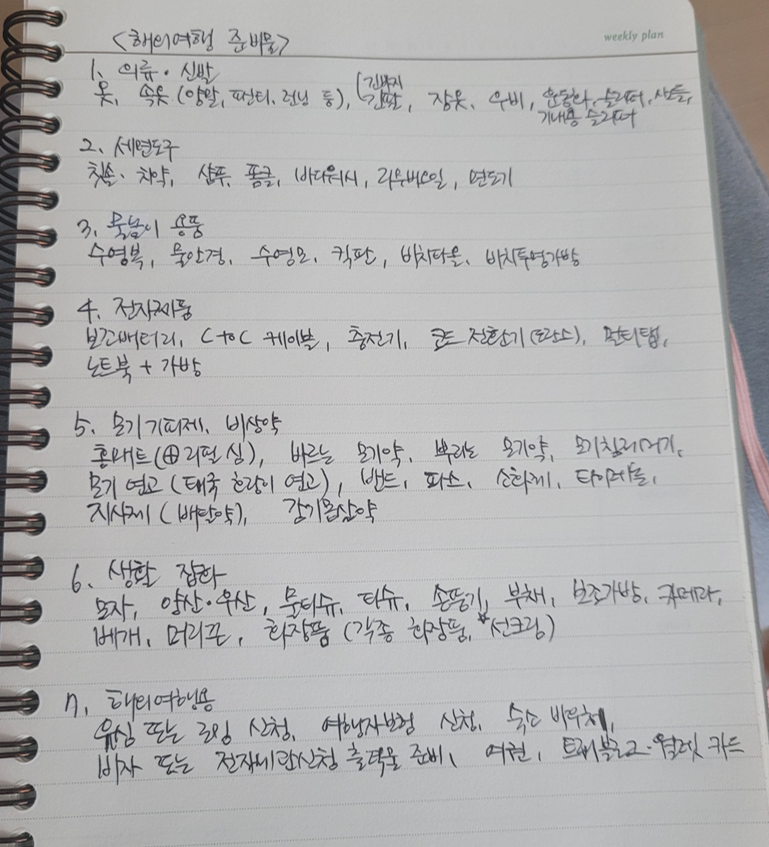 weekly plan
<해외여행 준비물>
1. 의류·신발
옷, 속옷(양말, 팬티, 런닝 등), (긴바지 긴팔, 잠옷, 우비, 운동화, 슬리퍼, 샌들,
기내용 슬리퍼
2. 세면도구
칫솔·치약, 샴푸, 폼클, 바디워시, 면도기
3. 물놀이 용품
수영복, 물안경, 수영모, 킥판, 비치타올, 비치투명가방
4. 전자제품
보조배터리, C to C 케이블, 충전기, 코드 전환기(트랜스), 멀티탭,
노트북 + 가방
5. 모기기피제, 비상약
홈매트(⊕리필심), 바르는 모기약, 뿌리는 모기약,
모기 연고(태국 호랑이 연고), 밴드, 파스, 소화제, 타이레놀,
지사제(배탈약), 감기몸살약
6. 생활 잡화
모자, 양산·우산, 물티슈, 티슈, 손톱깎기, 부채, 보조가방, 카메라,
베개, 머리끈, 화장품(각종 화장품, *선크림)
7. 해외여행용
유심 또는 로밍 신청, 여행자보험 신청, 숙소 바우처,
비자 또는 전자세관신청 출력물 준비, 여권, 트래블로그·월렛 카드